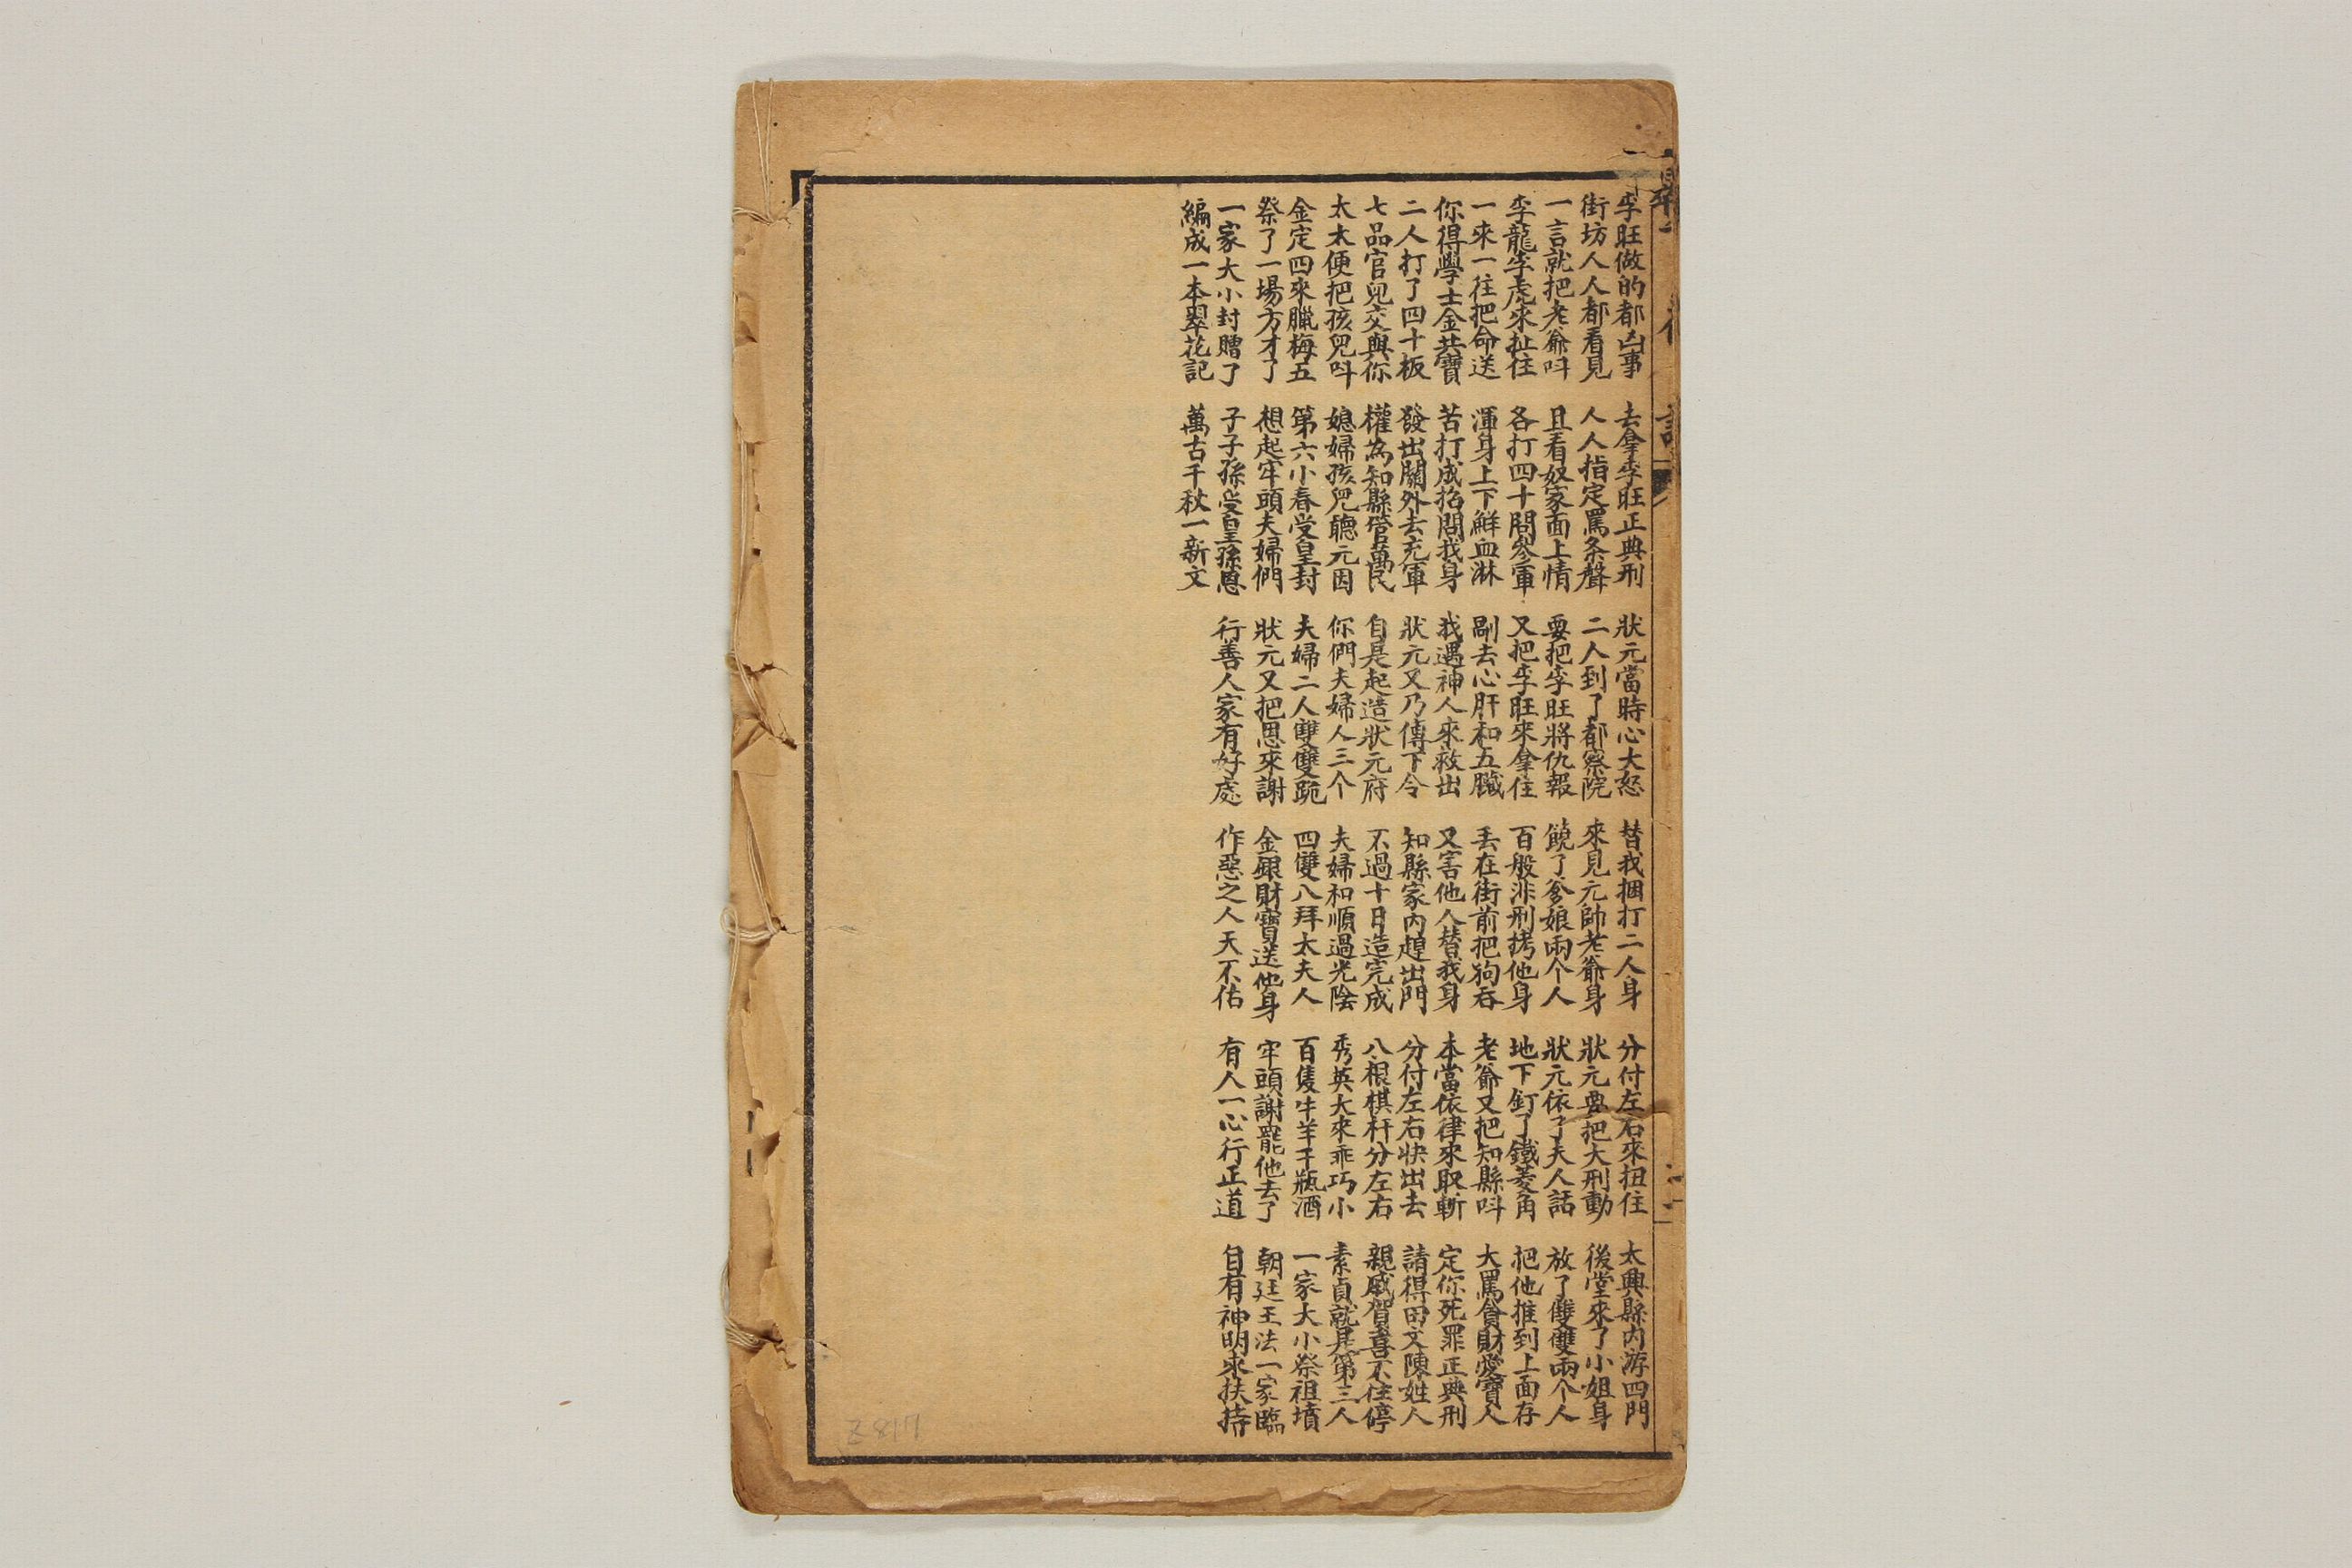 李旺做的都凶事 去拿李旺正典刑 狀元當時心大怒 替我捆打二人身 分付左右來扭住 太興縣内游四門
街坊人人都看見 人人指定罵条聲 二人到了都察院 來見元帥老爺身 狀元要把大刑動 後堂來了小姐身
一言就把老爺呌 且看奴家面上情 要把李旺將仇報 饒了爹娘兩个人 狀元依了夫人話 放了雙雙兩个人
李龍李虎來扯住 各打四十問岺軍 又把李旺來拿住 百般非刑拷他身 地下釘了鐵菱角 把他推到上面存
一來一往把命送 渾身上下鮮血淋 剮去心肝和五臟 丢在街前把狗吞 老爺又把知縣呌 大罵貪財愛寶人
你得學士金共寶 苦打成招問我身 我遇神人來救出 又害他人替我身 本當依律來取斬 定你死罪正典刑
二人打了四十板 發出關外去充軍 狀元又乃傳下令 知縣家内趕出門 分付左右快出去 請得田文陳姓人
七品官兒交與你 權為知縣管萬民 自是起造狀元府 不過十日造完成 八根棋杆分左右 親戚賀喜不住停
太太便把孩兒呌 媳婦孩兒聽元因 你們夫婦人三个 夫婦和順過光陰 秀英大來乖巧小 素貞就是第三人
金定四來臘梅五 第六小春受皇封 夫婦二人雙雙跪 四雙八拜太夫人 百隻牛羊千瓶酒 一家大小祭祖墳
祭了一場方才了 想起牢頭夫婦們 狀元又把恩來謝 金銀財寶送他身 牢頭謝罷他去了 朝廷王法一家臨
一家大小封贈了 子子孫受皇孫恩 行善人家有好處 作惡之人天不佑 有人一心行正道 自有神明來扶持
編成一本翠花記 萬古千秋一新文
Z 8117